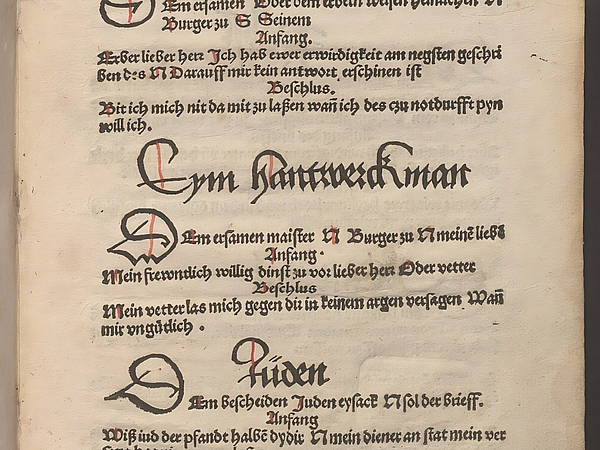 Em ersamen Oder dem erbeln weisen
Burger zu S Seinem
Anfang.
Erber lieber herr Ich hab ewer erwirdigkeit am negsten geschri
ben des N Darauff mir kein antwort erschinen ist
Beschlus.
Bit ich mich nit da mit zu laßen wañ ich des czu notdurfft pyn
will ich.
Eym hantwerckman
DEm ersamen maister N Burger zu N meinē liebē
Anfang.
Mein frewntlich willig dinst zu vor lieber herr Oder vetter
Beschlus
Mein vetter las mich gegen dir in keinem argen versagen Wañ
mir vngütlich.
Jüden
DEm bescheiden Juden eysack N sol der brieff.
Anfang
Wiß iud der pfandt halbē dy dir N mein diener an stat mein ver